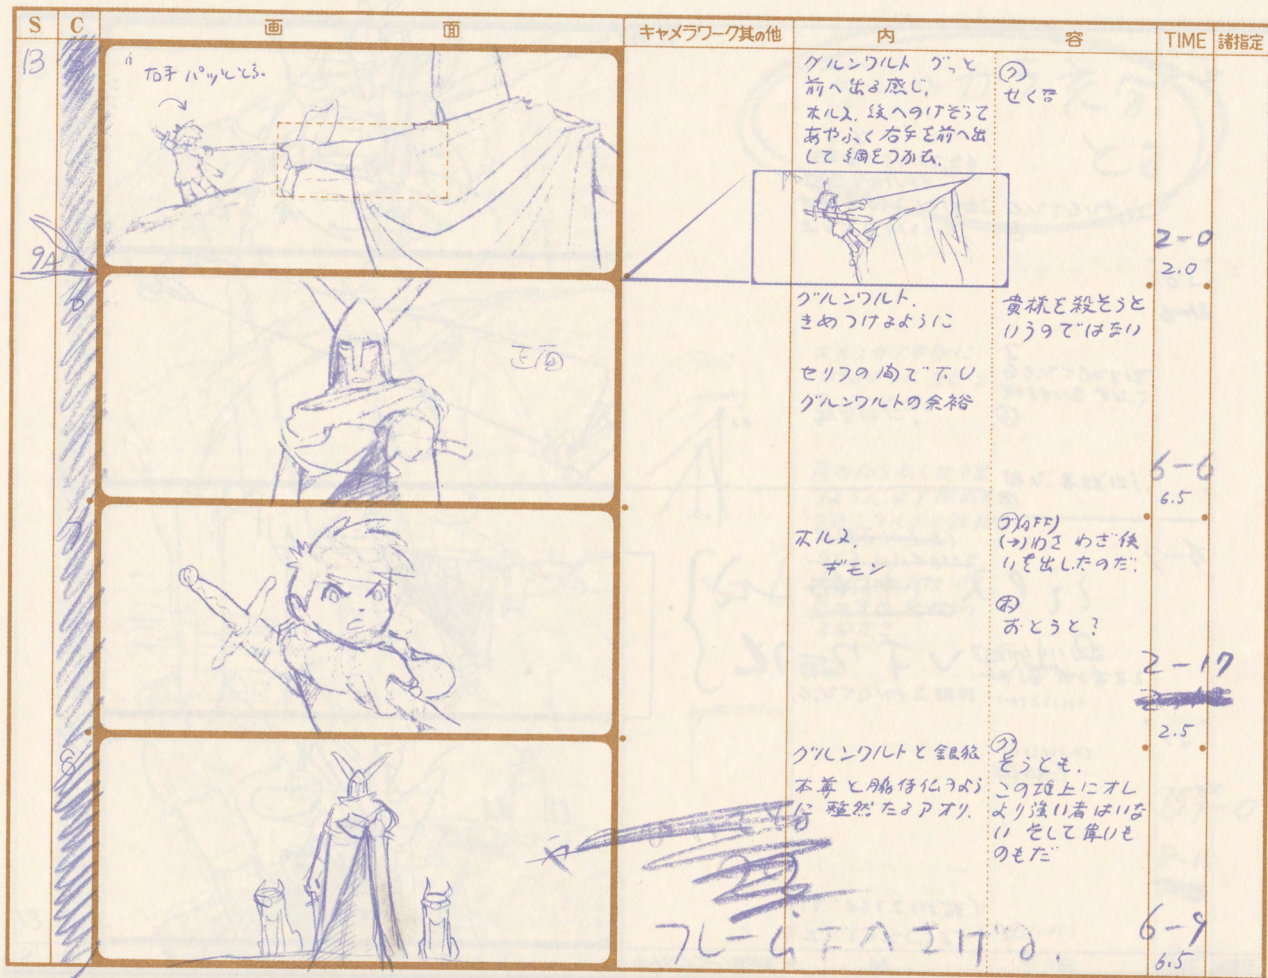 S C 画 面 キャメラワーク其の他 内 容 TIME 諸指定
13
右手 パッととる。
グルンワルト グっと
前へ出る感じ。
ホルス、後へのけぞって
あやふく右手を前へ出
して綱をつかむ。
グ
せく笞
2-0
2.0
9A
6
正面
グルンワルト.
きめつけるように
セリフの間でT.U
グルンワルトの余裕
貴様を殺そうと
いうのではない
6-6
6.5
7
ホルス
ギモン
グ(OFF)
(→)わざわざ使
いを出したのだ.
ホ
おとうと?
2-17
2.5
8
グルンワルトと銀狼
本尊と脇侍仏のよう
に整然たるアオリ.
グ
そうとも.
この地上にオレ
より強い者はいな
い そして偉いも
のもだ
フレーム下へさげる.
6-9
6.5